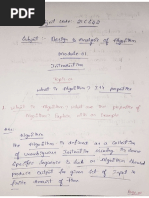 Subject code: 21CS42
Subject - Design & Analysis of Algorithm
Module-01
Introduction
what is Algorithm? It's properties
1 what is Algorithm? what are the properties of
Algorithm explain with an Example.
Ans:
Algorithm
The Algorithm is defined as a collection
of unambiguous Instructions occurring in Some
Specific Sequence & such an Algorithm Should
produce output for given Set of Input in
finite Amount of time